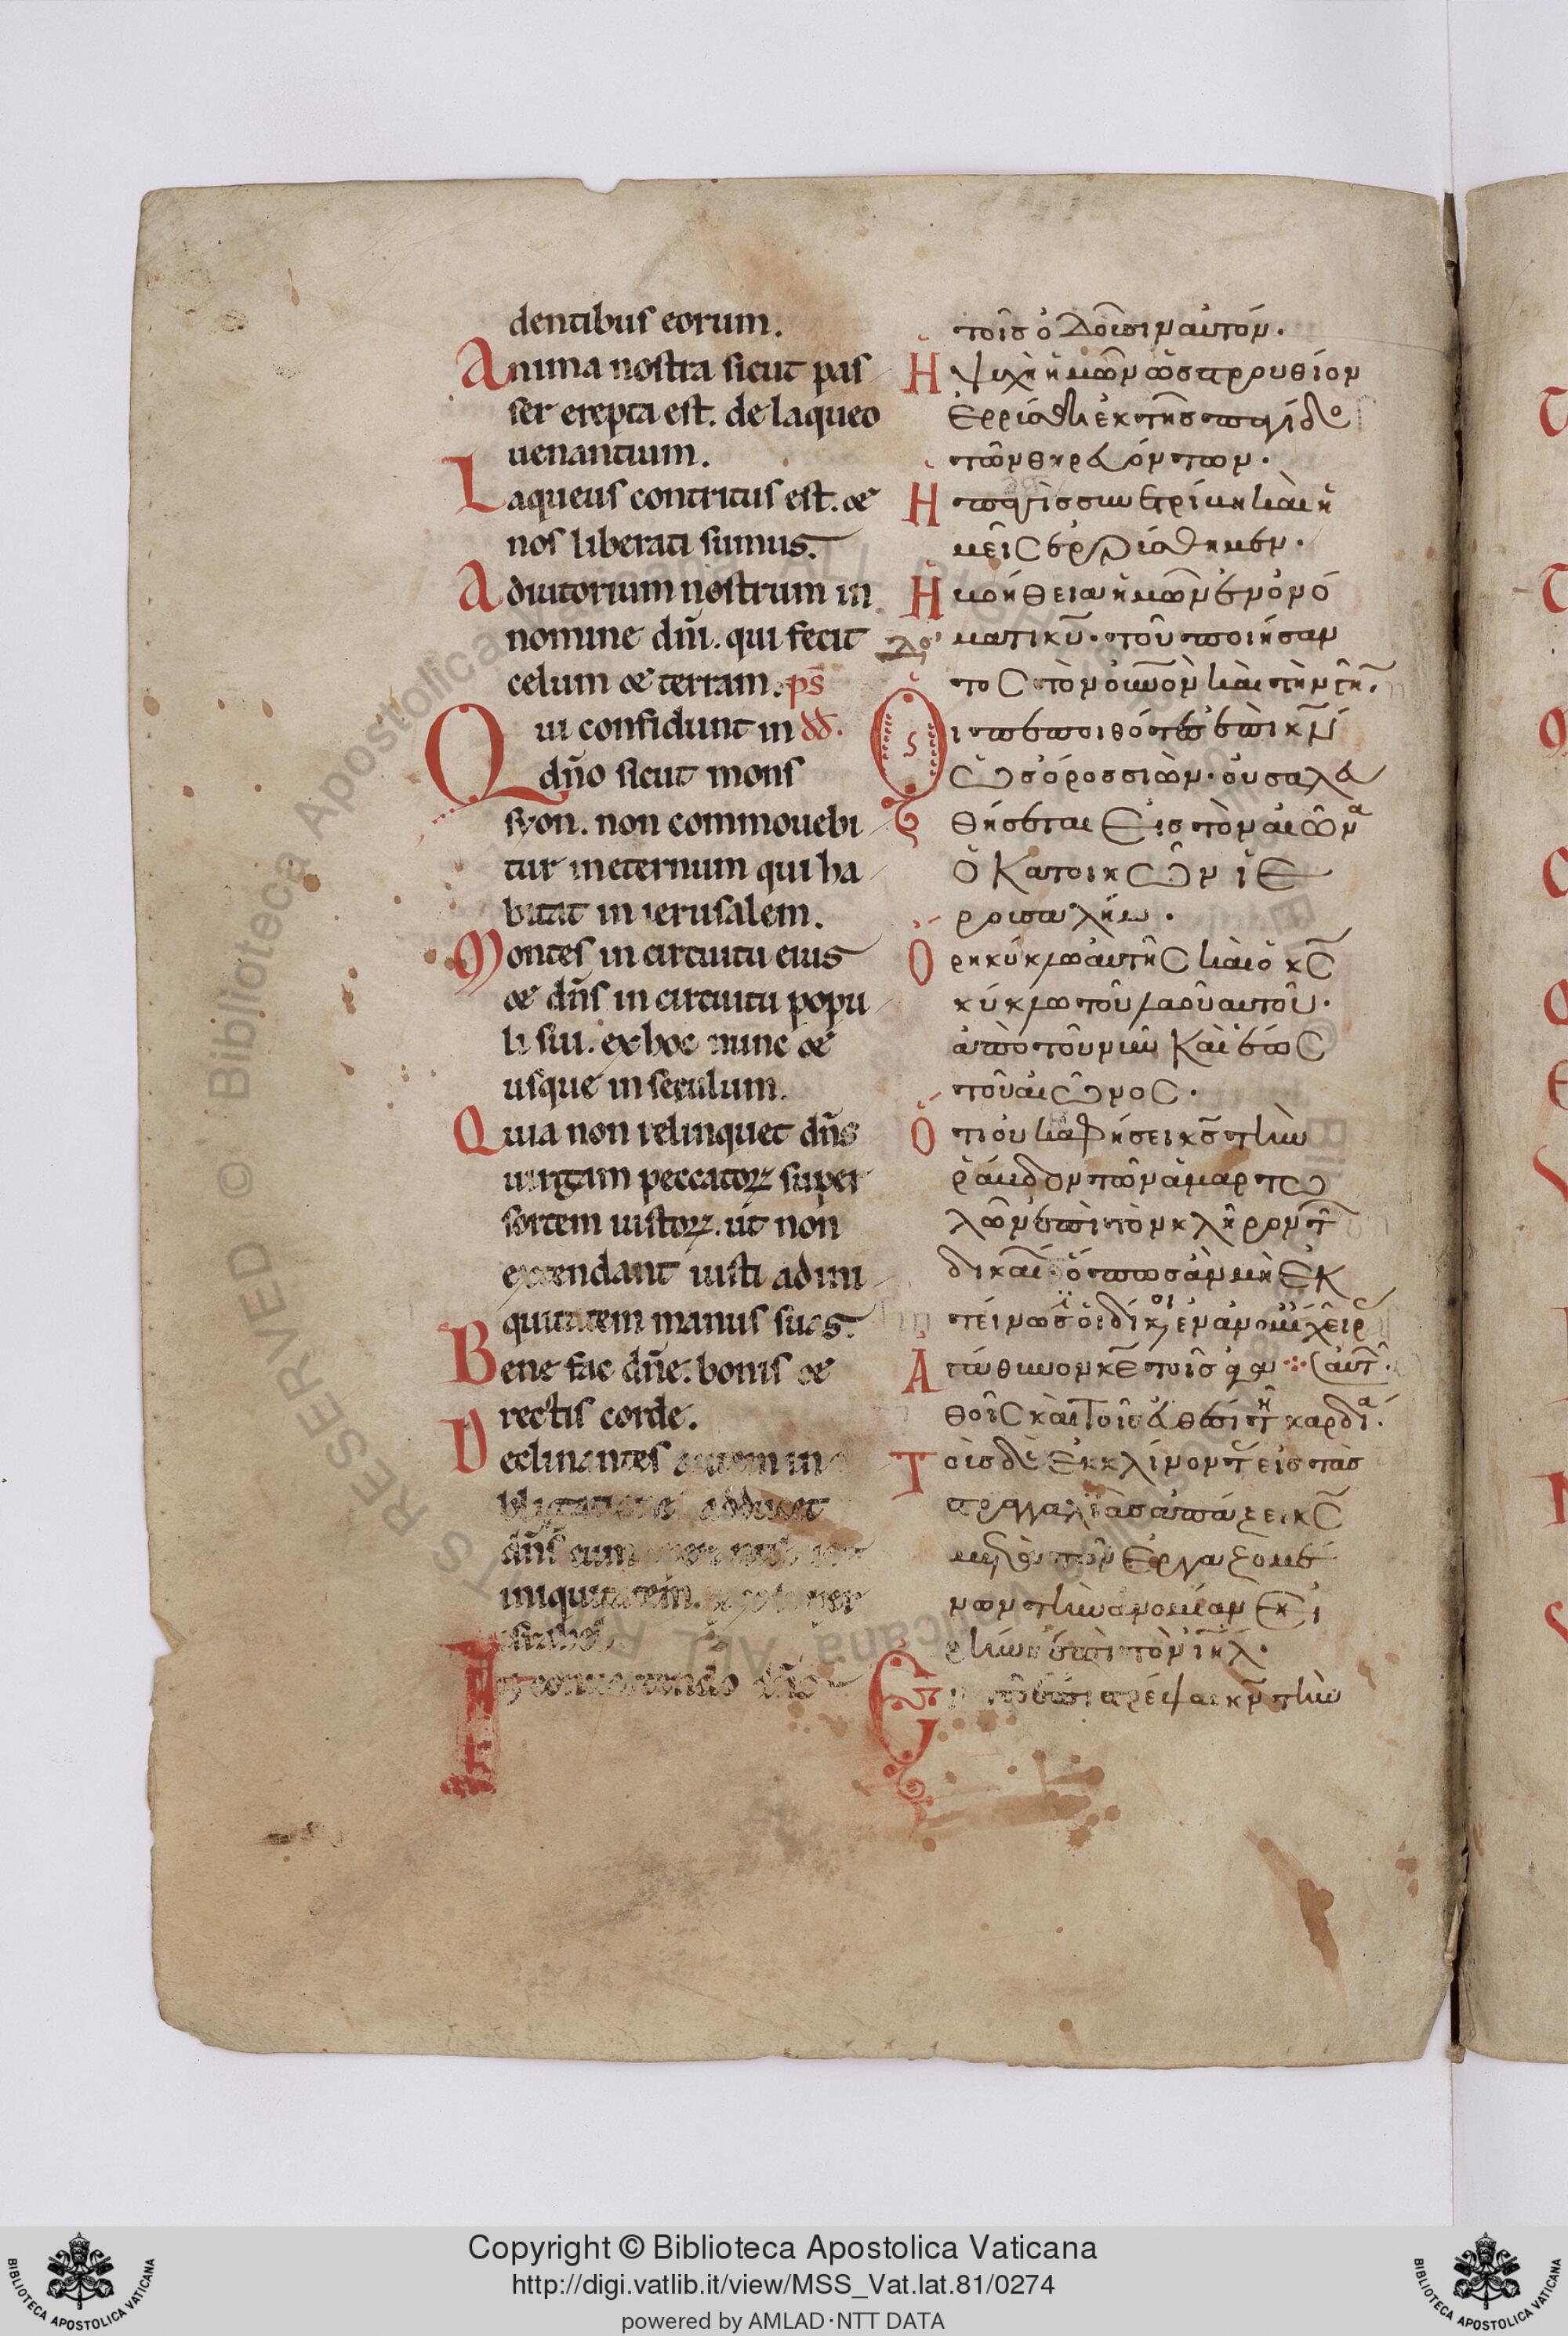 dentibus eorum.
Anima nostra sicut pas
ser erepta est. de laqueo
uenantium.
Laqueus contritus est. &
nos liberati sumus.
Adiutorium nostrum in
nomine dñi. qui fecit
celum & terram. ps̄
Qui confidunt in dd̄.
dño sicut mons
syon. non commouebi
tur in eternum qui ha
bitat in ierusalem.
Montes in circuitu eius
& dñs in circuitu popu
li sui. ex hoc nunc &
usque in seculum.
Quia non relinquet dñs
uirgam peccatorꝝ super
sortem iustorꝝ. ut non
extendant iusti ad ini
quitatem manus suas.
Bene fac dñe. bonis &
rectis corde.
Declinantes autem in
adducet
dñs cum
iniquitatem.
In conuertendo dño
τοῖς ὀδοῦσιν αὐτόν.
Ἡ ψυχὴ ἡμῶν ὡς στρουθίον
ἐρρίσθη ἐκ τῆς παγίδο
τῶν θηρευόντων.
Ἡ παγὶς συνετρίβη καὶ ἡ
μεῖς ἐρρύσθημεν.
Ἡ βοήθεια ἡμῶν ἐν ὀνό
ματι κῡ. τοῦ ποιήσαν
τος τὸν οὐνὸν καὶ τὴν γῆ.
Οἱ πεποιθότες ἐπὶ κν̄
ὡς ὄρος σιὼν. οὐ σαλευ
θήσεται εἰς τὸν αἰῶνα
ὁ κατοικῶν ἱε
ρουσαλήμ.
Ὄρη κύκλω αὐτῆς καὶ ὁ κς̄
κύκλω τοῦ λαοῦ αὐτοῦ.
ἀπὸ τοῦ νῦν καὶ ἕως
τοῦ αἰῶνος.
Ὅτι οὐκ ἀφήσει κς̄ τὴν
ῥάβδον τῶν ἁμαρτω
λῶν ἐπὶ τὸν κλῆρον τ
δικαί. ὅπως ἂν μὴ ἐκ
τείνωσ οἱ δίκοι ἐν ἀνομί χεῖρ
Ἀγάθυνον κε̄ τοῖς ἀγα (αὐτ.
θοῖς καὶ τοῖς εὐθέσι τῆ καρδία.
Τοὺς δὲ ἐκκλίνοντ εἰς τὰς
στραγγαλιὰς ἀπάξει κς̄
μετὰ τῶν ἐργαζομέ
νων τὴν ἀνομίαν εἰ
ρήνη ἐπὶ τὸν ἰηλ̄.
Ἐν τῶ ἐπιστρέψαι κν̄ τὴν
Copyright © Biblioteca Apostolica Vaticana
http://digi.vatlib.it/view/MSS_Vat.lat.81/0274
powered by AMLAD·NTT DATA